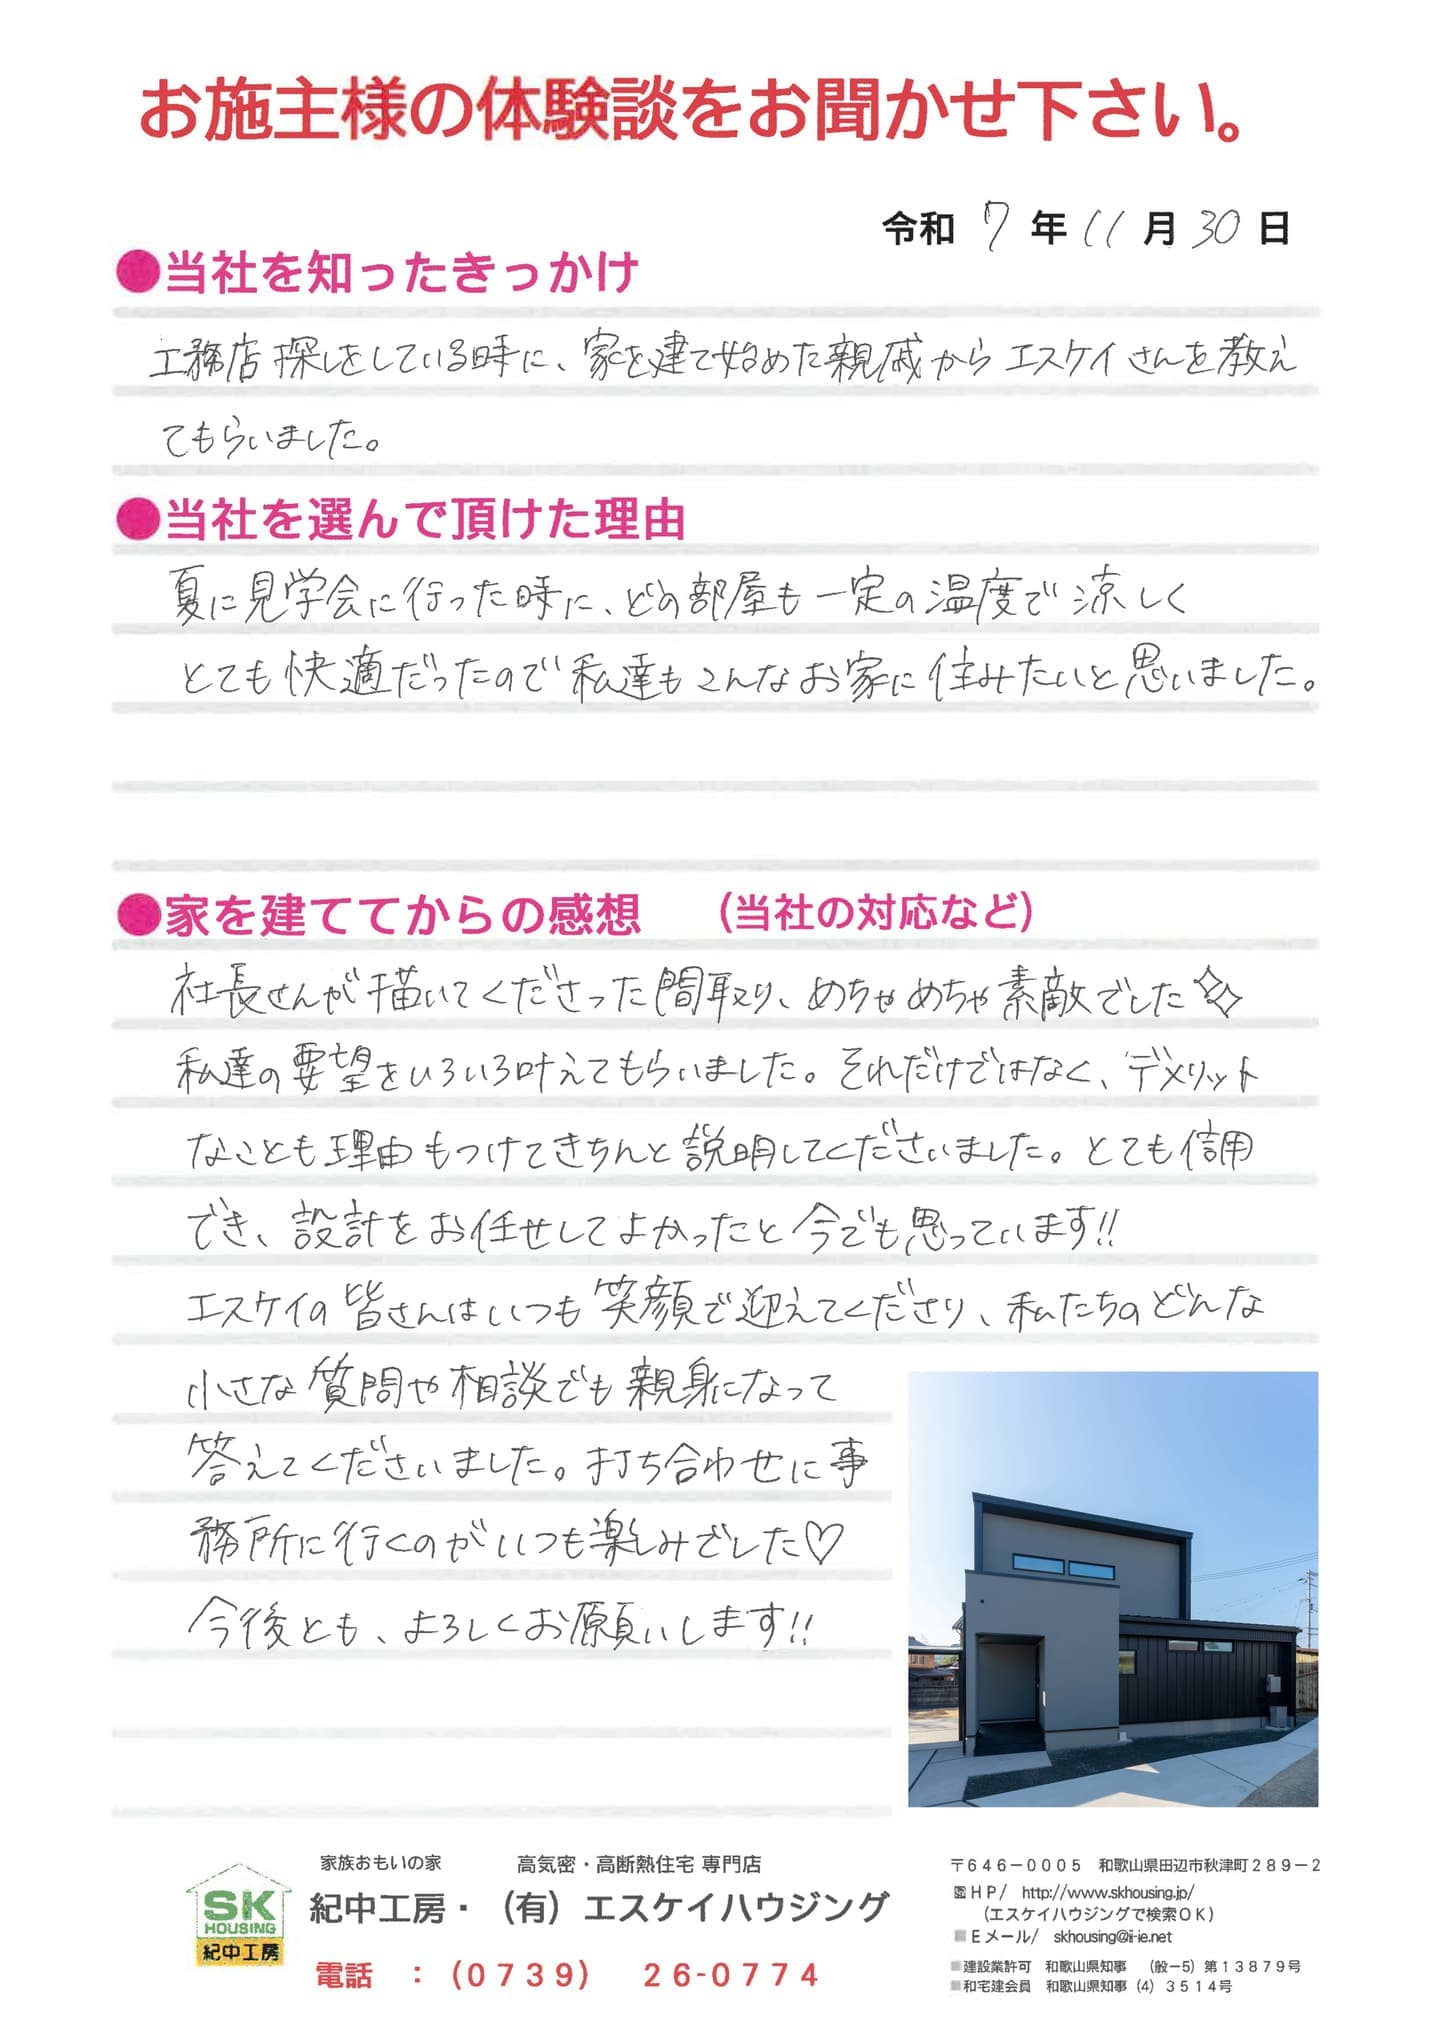 お施主様の体験談をお聞かせ下さい。
令和 7 年 11 月 30 日
●当社を知ったきっかけ
工務店探しをしている時に、家を建て始めた親戚からエスケイさんを教え
てもらいました。
●当社を選んで頂けた理由
夏に見学会に行った時に、どの部屋も一定の温度で涼しく
とても快適だったので私達もこんなお家に住みたいと思いました。
●家を建ててからの感想 (当社の対応など)
社長さんが描いてくださった間取り、めちゃめちゃ素敵でした
私達の要望をいろいろ叶えてもらいました。それだけではなく、デメリット
なことも理由もつけてきちんと説明してくださいました。とても信用
でき、設計をお任せしてよかったと今でも思っています!!
エスケイの皆さんはいつも笑顔で迎えてくださり、私たちのどんな
小さな質問や相談でも親身になって
答えてくださいました。打ち合わせに事
務所に行くのがいつも楽しみでした♡
今後とも、よろしくお願いします!!
SK
HOUSING
紀中工房
家族おもいの家 高気密・高断熱住宅 専門店
紀中工房・(有)エスケイハウジング
電話 :(0739) 26-0774
〒646-0005 和歌山県田辺市秋津町289-2
HP/ http://www.skhousing.jp/
(エスケイハウジングで検索OK)
Eメール/ skhousing@ii-ie.net
建設業許可 和歌山県知事 (般-5)第13879号
和宅建会員 和歌山県知事(4)3514号